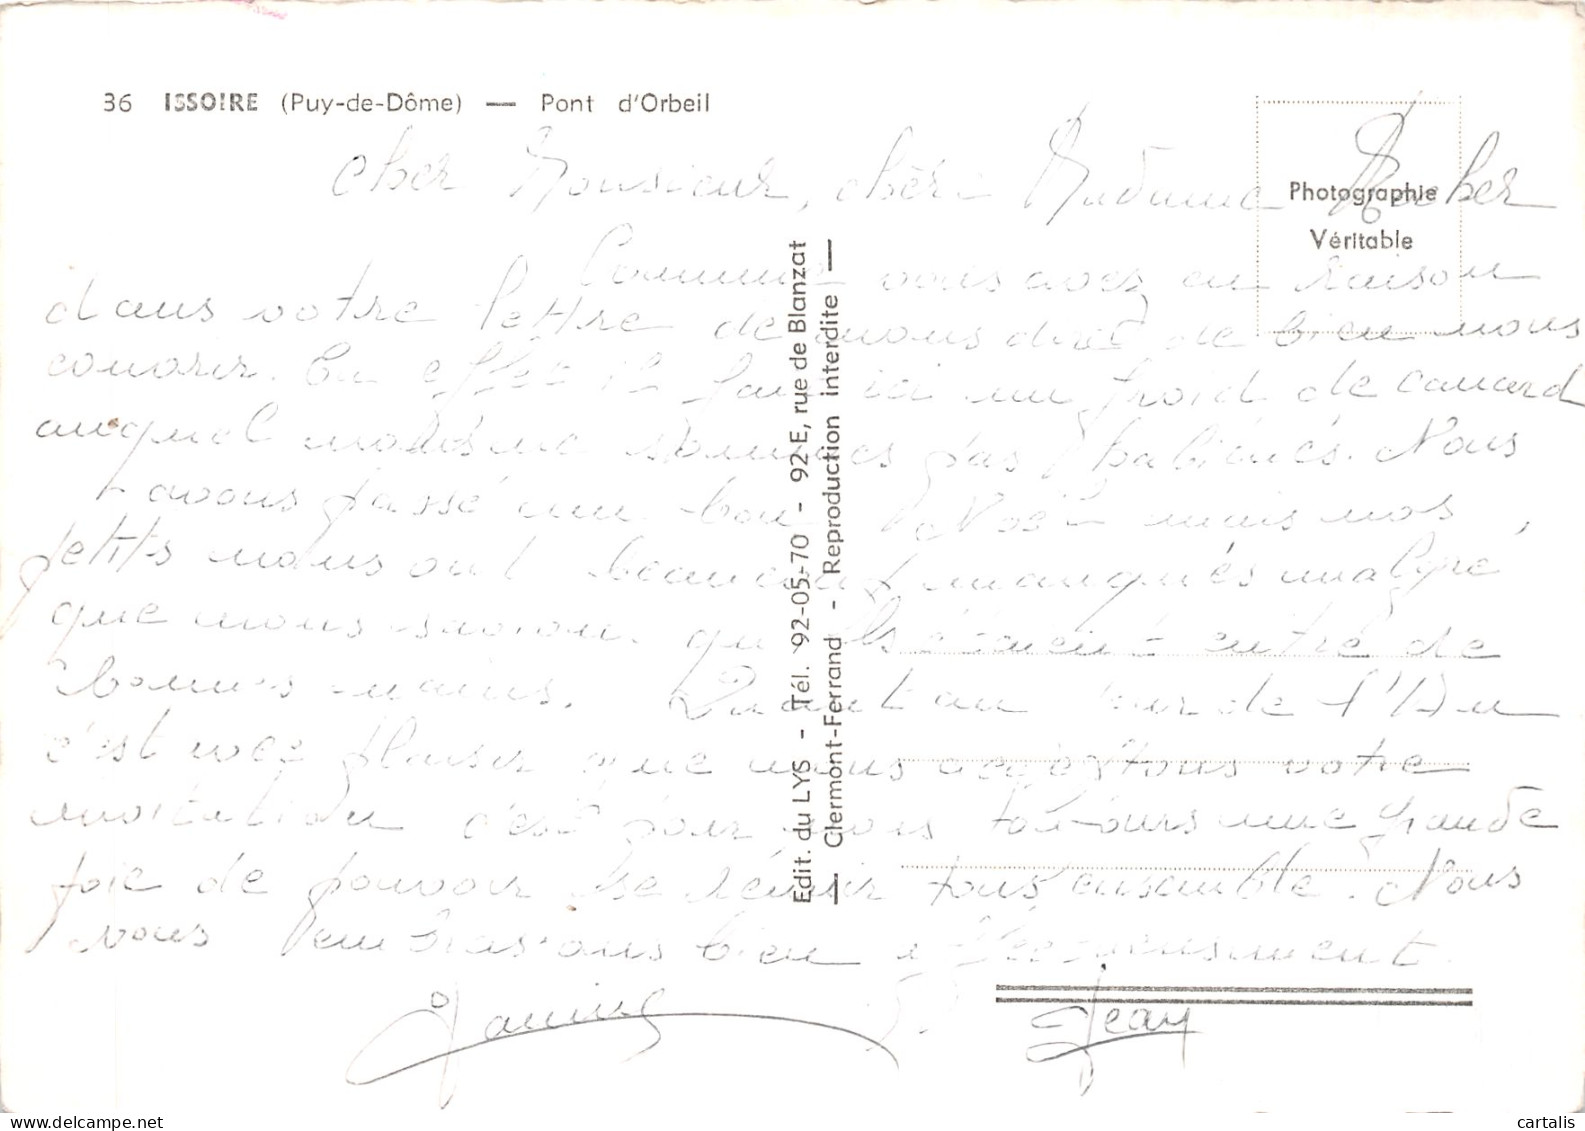 36 ISSOIRE (Puy-de-Dôme) — Pont d'Orbeil
Photographie
Véritable
cher Monsieur, chère Madame
Comme vous avez eu raison
dans votre lettre de nous dire de bien nous
couvrir. En effet il fait ici un froid de canard
auquel nous ne sommes pas habitués. Nous
avons passé un bon Noël mais nos
petits nous ont beaucoup manqués malgré
que nous savions qu'ils étaient entre de
bonnes mains. Quant au jour de l'An
c'est avec plaisir que nous acceptons votre
invitation c'est pour nous toujours une grande
joie de pouvoir se réunir tous ensemble. Nous
vous embrassons bien affectueusement.
Janine Jean
Edit. du LYS - Tél. 92-05-70 - 92 E, rue de Blanzat
— Clermont-Ferrand - Reproduction interdite —
cartalis